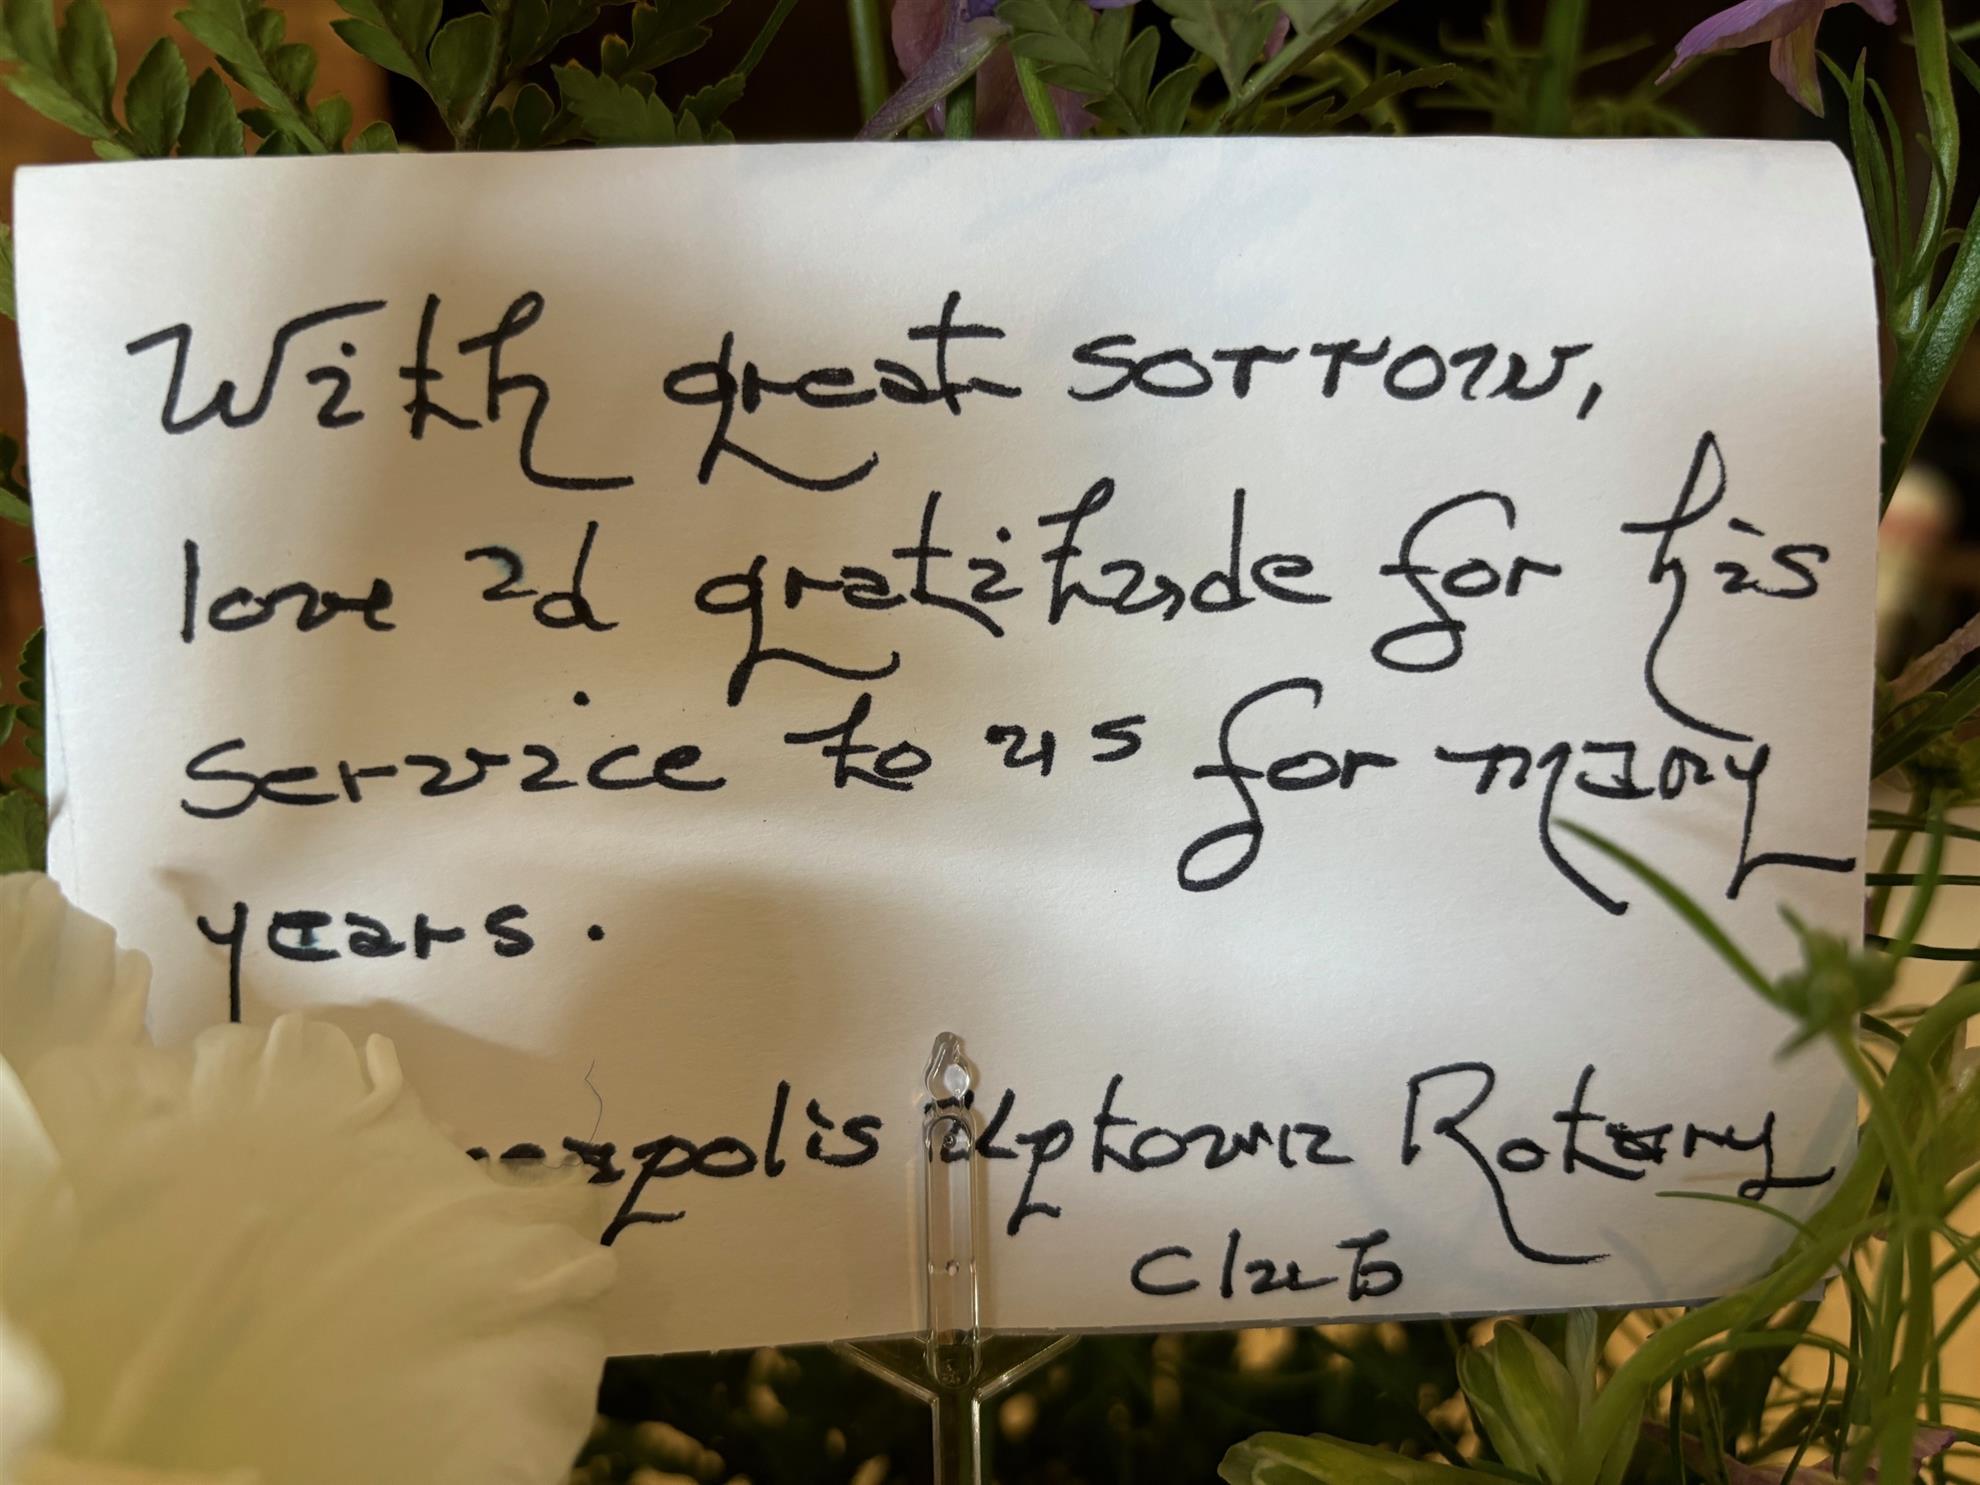 With great sorrow,
love ad gratitude for his
service to us for many
years.
neapolis Uptown Rotary
Club